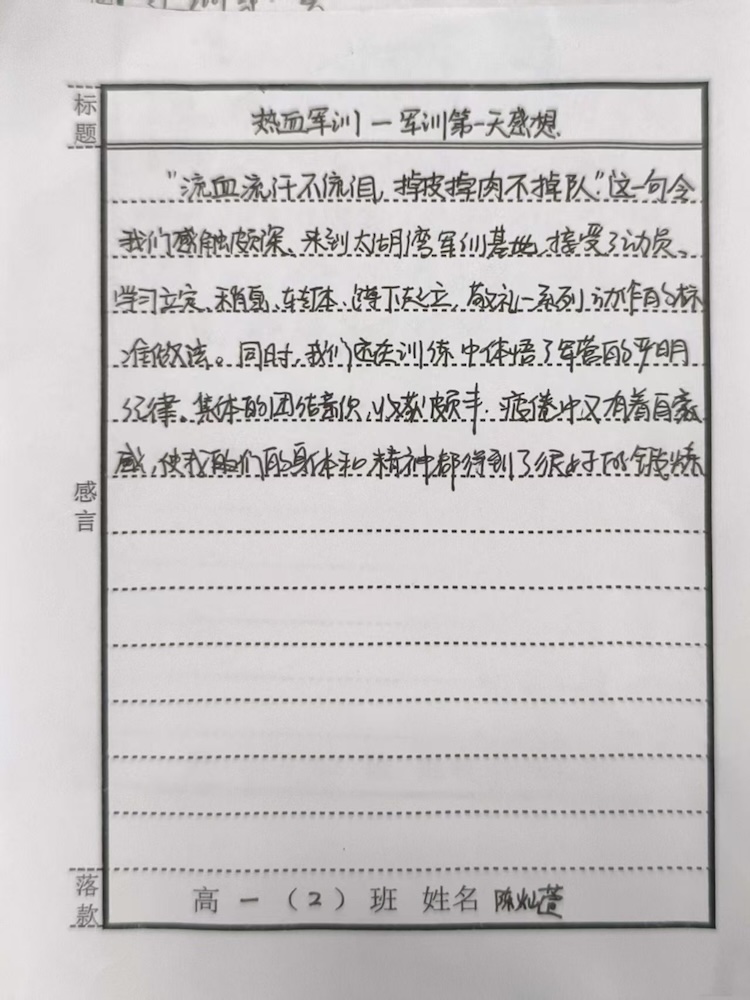 标题
热血军训一军训第一天感想
“流血流汗不流泪,掉皮掉肉不掉队”这一句令
我们感触颇深、来到太湖湾军训基地,接受了动员、
学习立定、稍息、车转体、蹲下起立,敬礼一系列动作的标
准做法。同时,我们还在训练中体悟了军营的严明
纪律。集体的团结意识,收获颇丰.疲倦中又有着自豪
感,使我们的身体和精神都得到了很好的锻炼
感言
落款
高一(2)班 姓名 陈灿萱